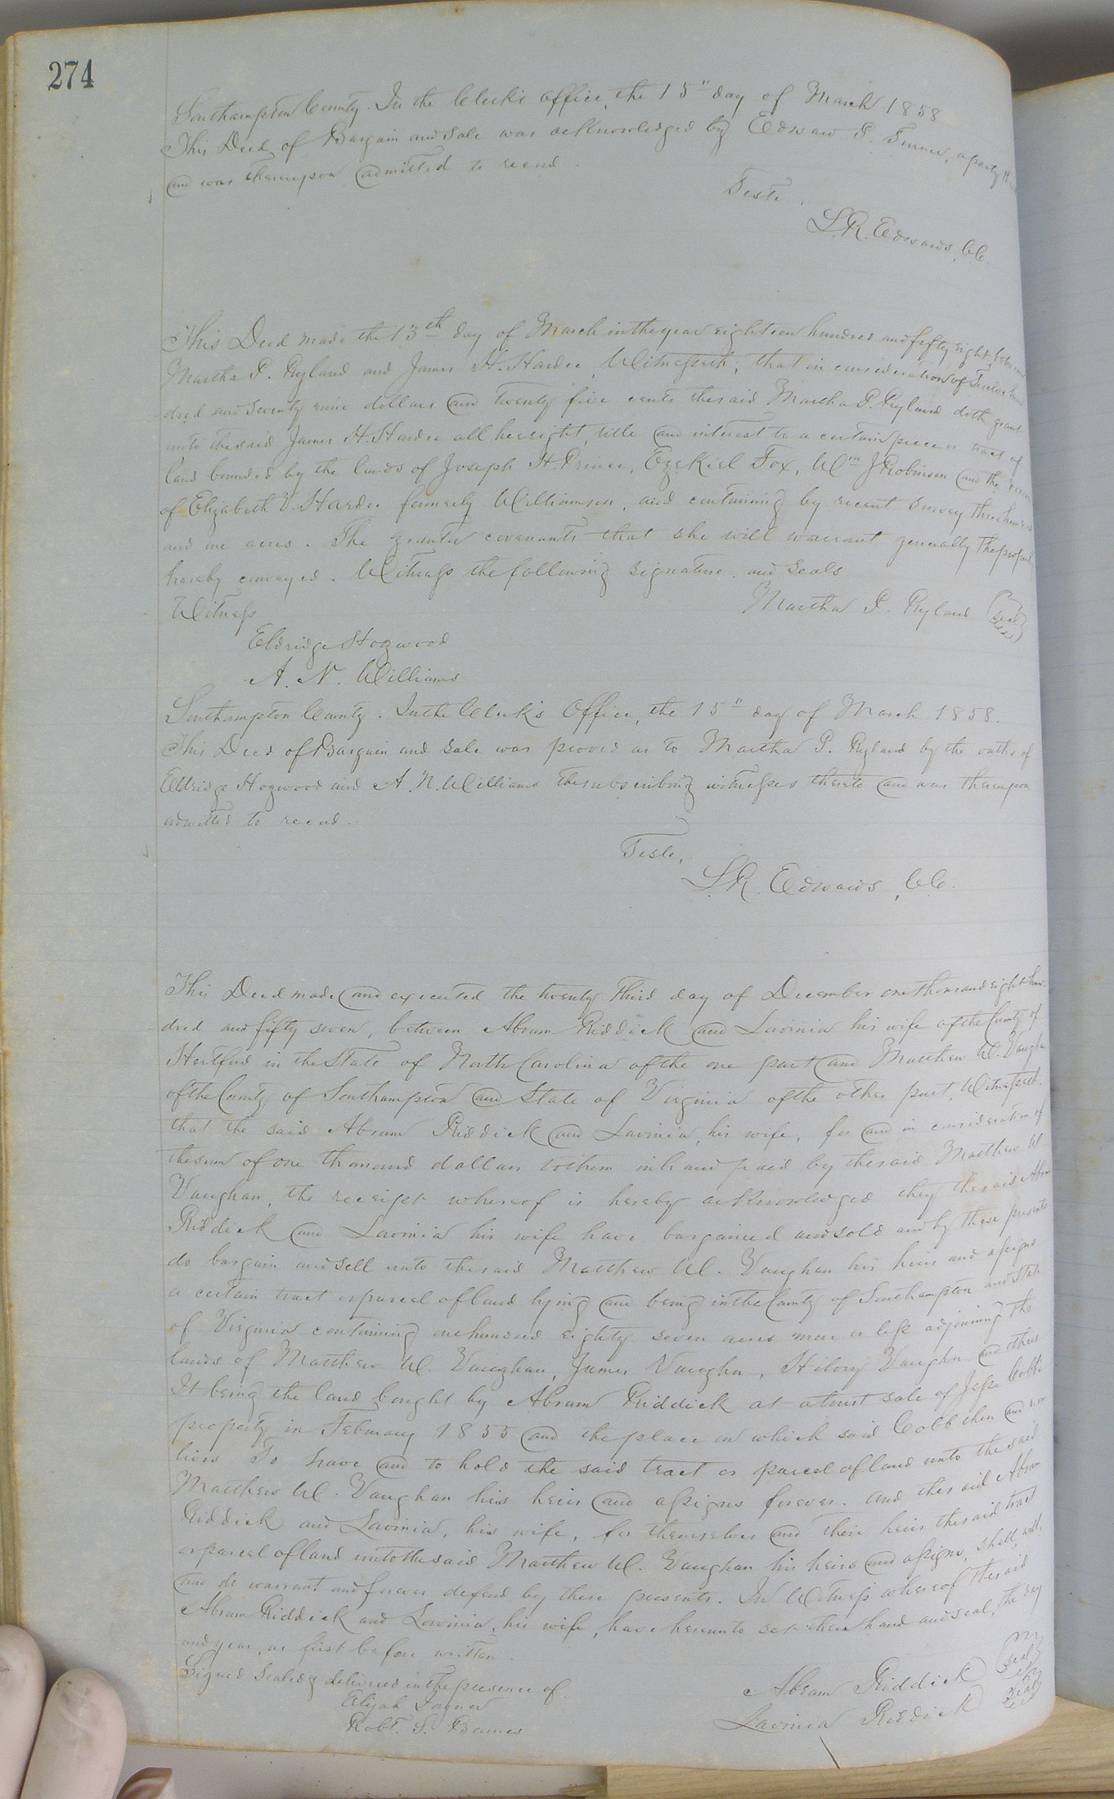 274
Southampton County. In the Clerk's Office, the 15" day of March 1858
This Deed of Bargain and Sale was acknowledged by Edward P. Turner, a party
and was thereupon admitted to record.
Teste,
L. R. Edwards, C.C.
This Deed made the 13th day of March in the year eighteen hundred and fifty eight, between
Martha P. Ryland and James H. Hardee, Witnesseth, that in consideration of
dred and seventy nine dollars and twenty five cents the said Martha P. Ryland doth grant
unto the said James H. Hardee all her right, title and interest to a certain piece or tract of
land bounded by the lands of Joseph H. Prince, Ezekiel Fox, Wm J Robinson and the
of Elizabeth V. Hardee formerly Williamson, and containing by recent survey three hundred
and one acres. The grantor covenants that she will warrant generally the property
hereby conveyed. Witness the following signature and seals
Witness Martha P. Ryland Seal
Eldridge Hogwood
A. N. Williams
Southampton County. In the Clerk's Office, the 15" day of March 1858.
This Deed of Bargain and sale was proved as to Martha P. Ryland by the oaths of
Eldridge Hogwood and A. N. Williams the subscribing witnesses thereto and was thereupon
admitted to record.
Teste,
L. R. Edwards, C.C.
This Deed made and executed the twenty third day of December one thousand eight hun-
dred and fifty seven, between Abram Riddick and Lavinia his wife of the County of
Hertford in the State of North Carolina of the one part and Matthew W. Vaughan
of the County of Southampton and State of Virginia of the other part, Witnesseth
that the said Abram Riddick and Lavinia, his wife, for and in consideration of
the sum of one thousand dollars to them in hand paid by the said Matthew W
Vaughan, the receipt whereof is hereby acknowledged they the said Abram
Riddick and Lavinia his wife have bargained and sold and by these presents
do bargain and sell unto the said Matthew W. Vaughan his heirs and assigns
a certain tract or parcel of land lying and being in the County of Southampton and State
of Virginia containing one hundred eighty seven acres more or less adjoining the
lands of Matthew W. Vaughan, James Vaughn, Hilory Vaughn and others
It being the land bought by Abram Riddick at a trust sale of Jesse Cobbs
property in February 1855 and the place on which said Cobb then and now
lives To have and to hold the said tract or parcel of land unto the said
Matthew W. Vaughan his heirs and assigns forever. And the said Abram
Riddick and Lavinia, his wife, for themselves and their heirs the said tract
or parcel of land unto the said Matthew W. Vaughan his heirs and assigns, shall, will,
and do warrant and forever defend by these presents. In Witness whereof the said
Abram Riddick and Lavinia, his wife, have hereunto set their hand and seal, the day
and year, as first before written.
Signed Sealed & delivered in the presence of
Abram Riddick Seal
Elijah Joyner
Lavinia Riddick Seal
Robt. S. Barnes